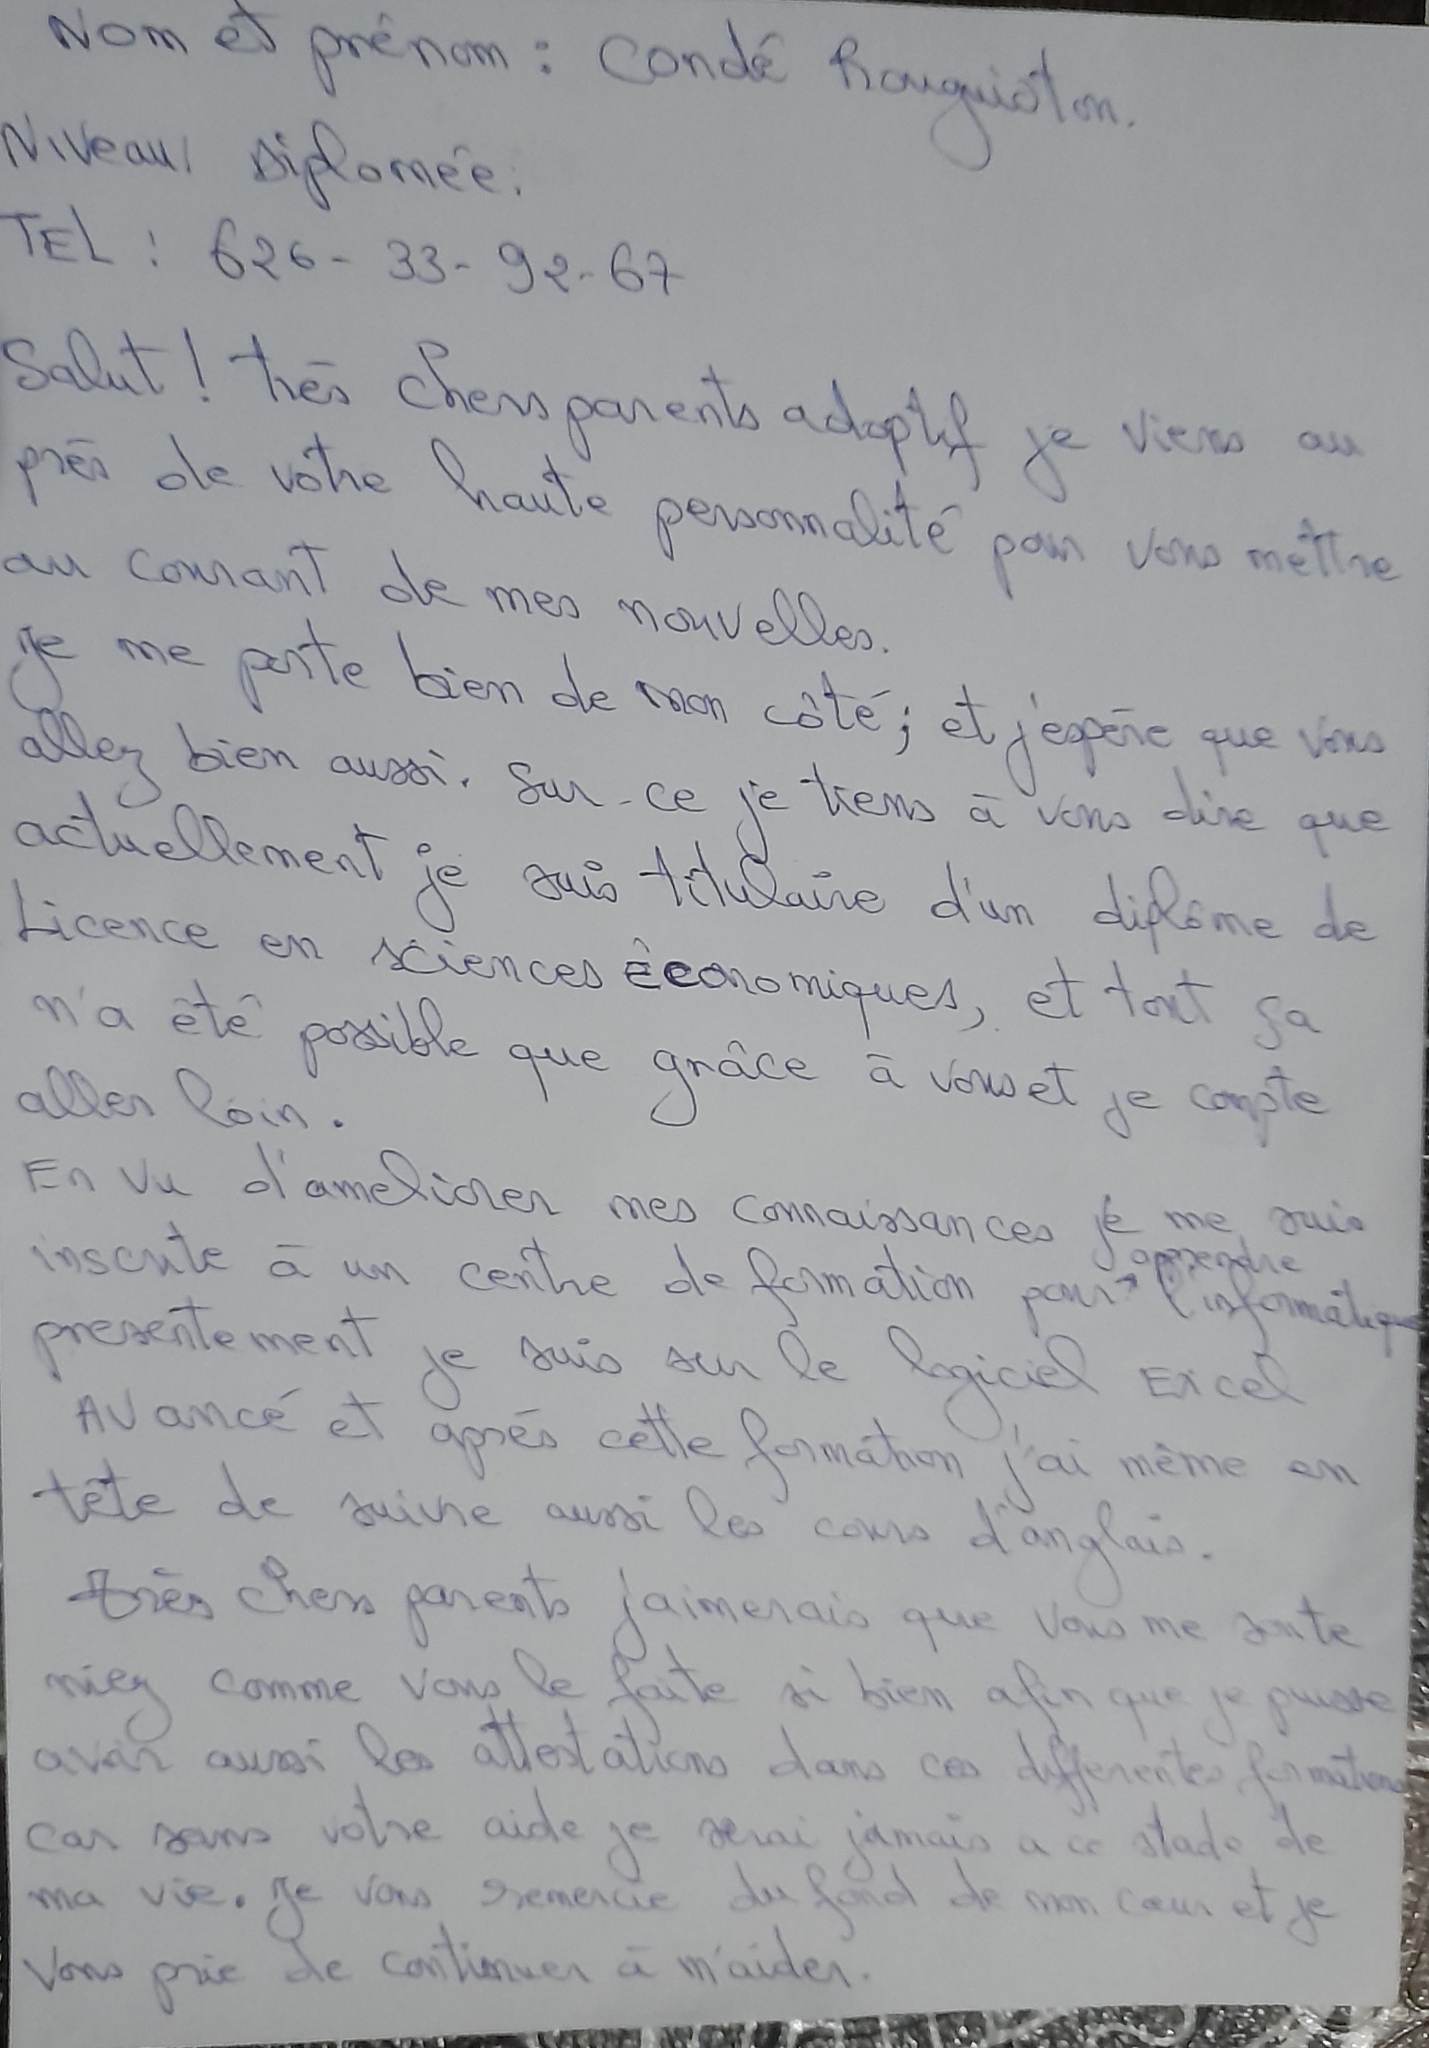 Nom et prénom : Condé Rouguiatou.
Niveau : Diplomée.
TEL : 626-33-92-67
Salut ! très chers parents adoptif je viens au
près de votre haute personnalité pour vous mettre
au courant de mes nouvelles.
Je me porte bien de mon côté ; et j'espère que vous
allez bien aussi. Sur-ce je tiens à vous dire que
actuellement je suis titulaire d'un diplôme de
Licence en sciences économiques, et tout ça
n'a été possible que grâce à vous et je compte
aller loin.
En vu d'ameliorer mes connaissances je me suis
inscrite à un centre de formation pour apprendre l'informatique
presentement je suis sur le logiciel Excel
Avancé et après cette formation j'ai même en
tête de suivre aussi les cours d'anglais.
très chers parents j'aimerais que vous me soute
niez comme vous le faite si bien afin que je puisse
avoir aussi les attestations dans ces differentes formations
car sans votre aide je serai jamais a ce stade de
ma vie. Je vous remercie du fond de mon cœur et je
vous prie de continuer à m'aider.